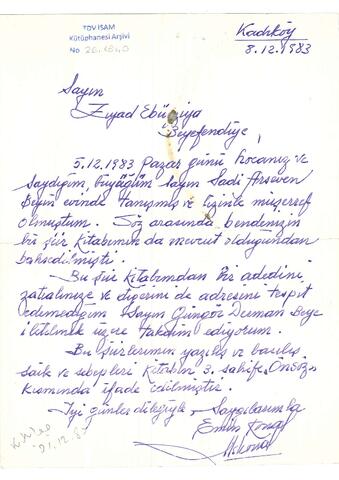 TDV İSAM
Kütüphanesi Arşivi
No 2G.1840
Kadıköy
8.12.1983
Sayın
Ziyad Ebüzziya
Beyefendiye,
5.12.1983 Pazar günü hocanız ve
saydığım, büyüğüm Sayın Sadi Arseven
Beyin evinde tanışmış ve sizinle müşerref
olmuştum. Söz arasında bendenizin
bir şiir kitabımın da mevcut olduğundan
bahsedilmişti.
Bu şiir kitabımdan bir adedini
zatıalinize ve diğerini de adresini tespit
edemediğim Sayın Güngör Dierman Beye
iletilmek üzere takdim ediyorum.
Bu şiirlerimin yazılış ve basılış
saik ve sebepleri kitabın 3. sahife, Önsöz
kısmında ifade edilmiştir.
İyi günler dileğiyle, Saygılarımla
Emin
21.12.83